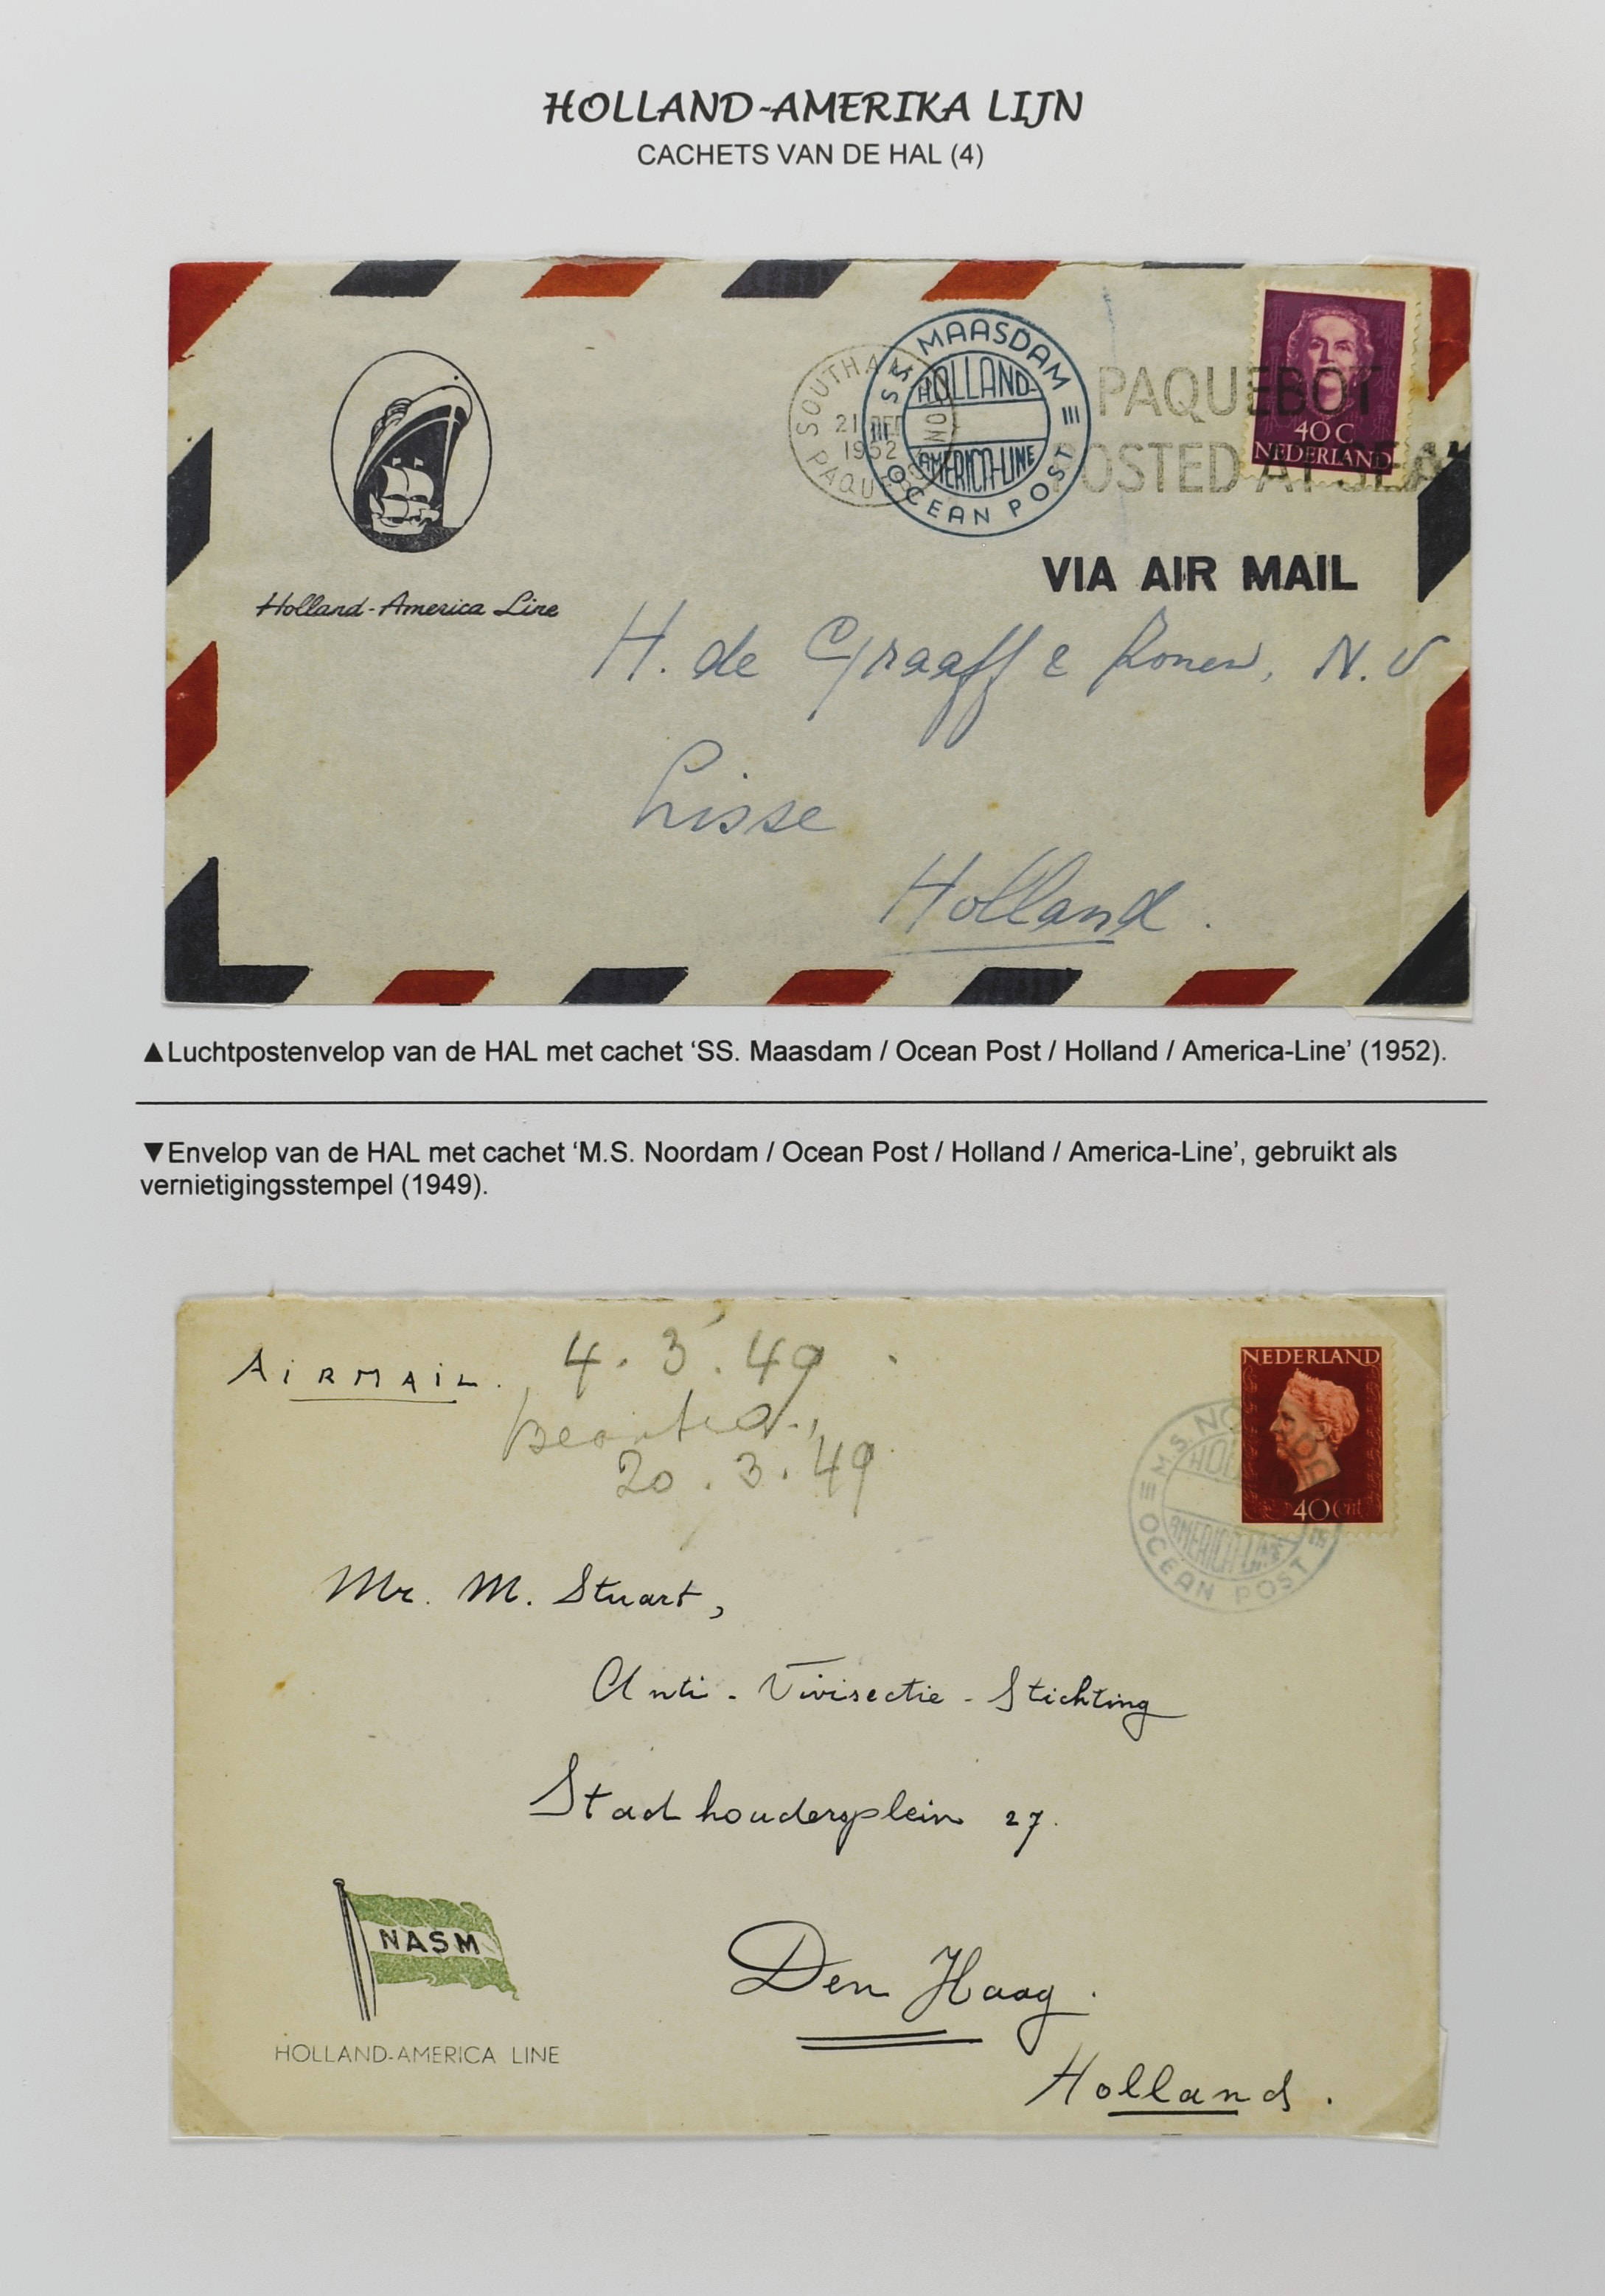 HOLLAND-AMERIKA LIJN
CACHETS VAN DE HAL (4)
SOUTHAM
21 DEC
1952
PAQUE
SS MAASDAM
HOLLAND-
AMERICA-LINE
OCEAN POST
PAQUEBOT
POSTED AT SEA
40 C
NEDERLAND
VIA AIR MAIL
Holland-America Line
H. de Graaff & Zonen, N.V
Lisse
Holland.
▲Luchtpostenvelop van de HAL met cachet ‘SS. Maasdam / Ocean Post / Holland / America-Line’ (1952).
▼Envelop van de HAL met cachet ‘M.S. Noordam / Ocean Post / Holland / America-Line’, gebruikt als
vernietigingsstempel (1949).
AIRMAIL.
4.3.49
beantw.,
20.3.49
NEDERLAND
40 Cnt
M.S. NO
HOL
AMERICA-LINE
OCEAN POST
Mr. M. Stuart,
Anti-Vivisectie-Stichting
Stadhoudersplein 27.
NASM
HOLLAND-AMERICA LINE
Den Haag.
Holland.